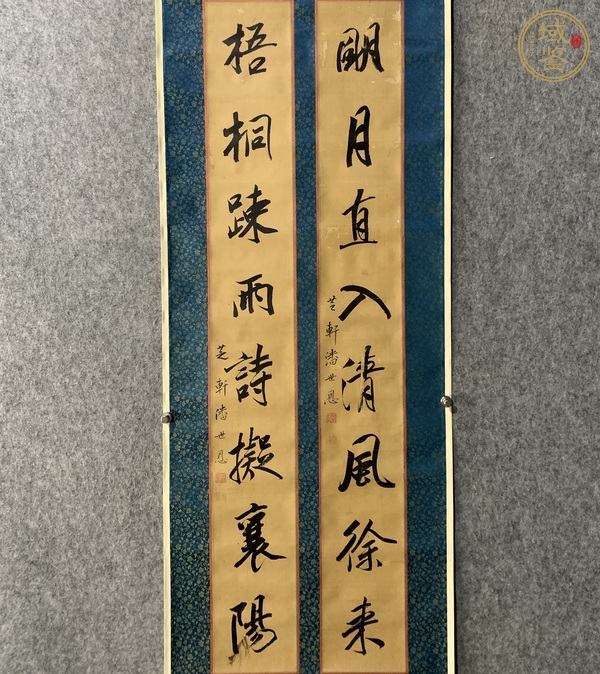 明月直入清風徐来
芝軒潘世恩
梧桐疎雨詩擬襄陽
芝軒潘世恩